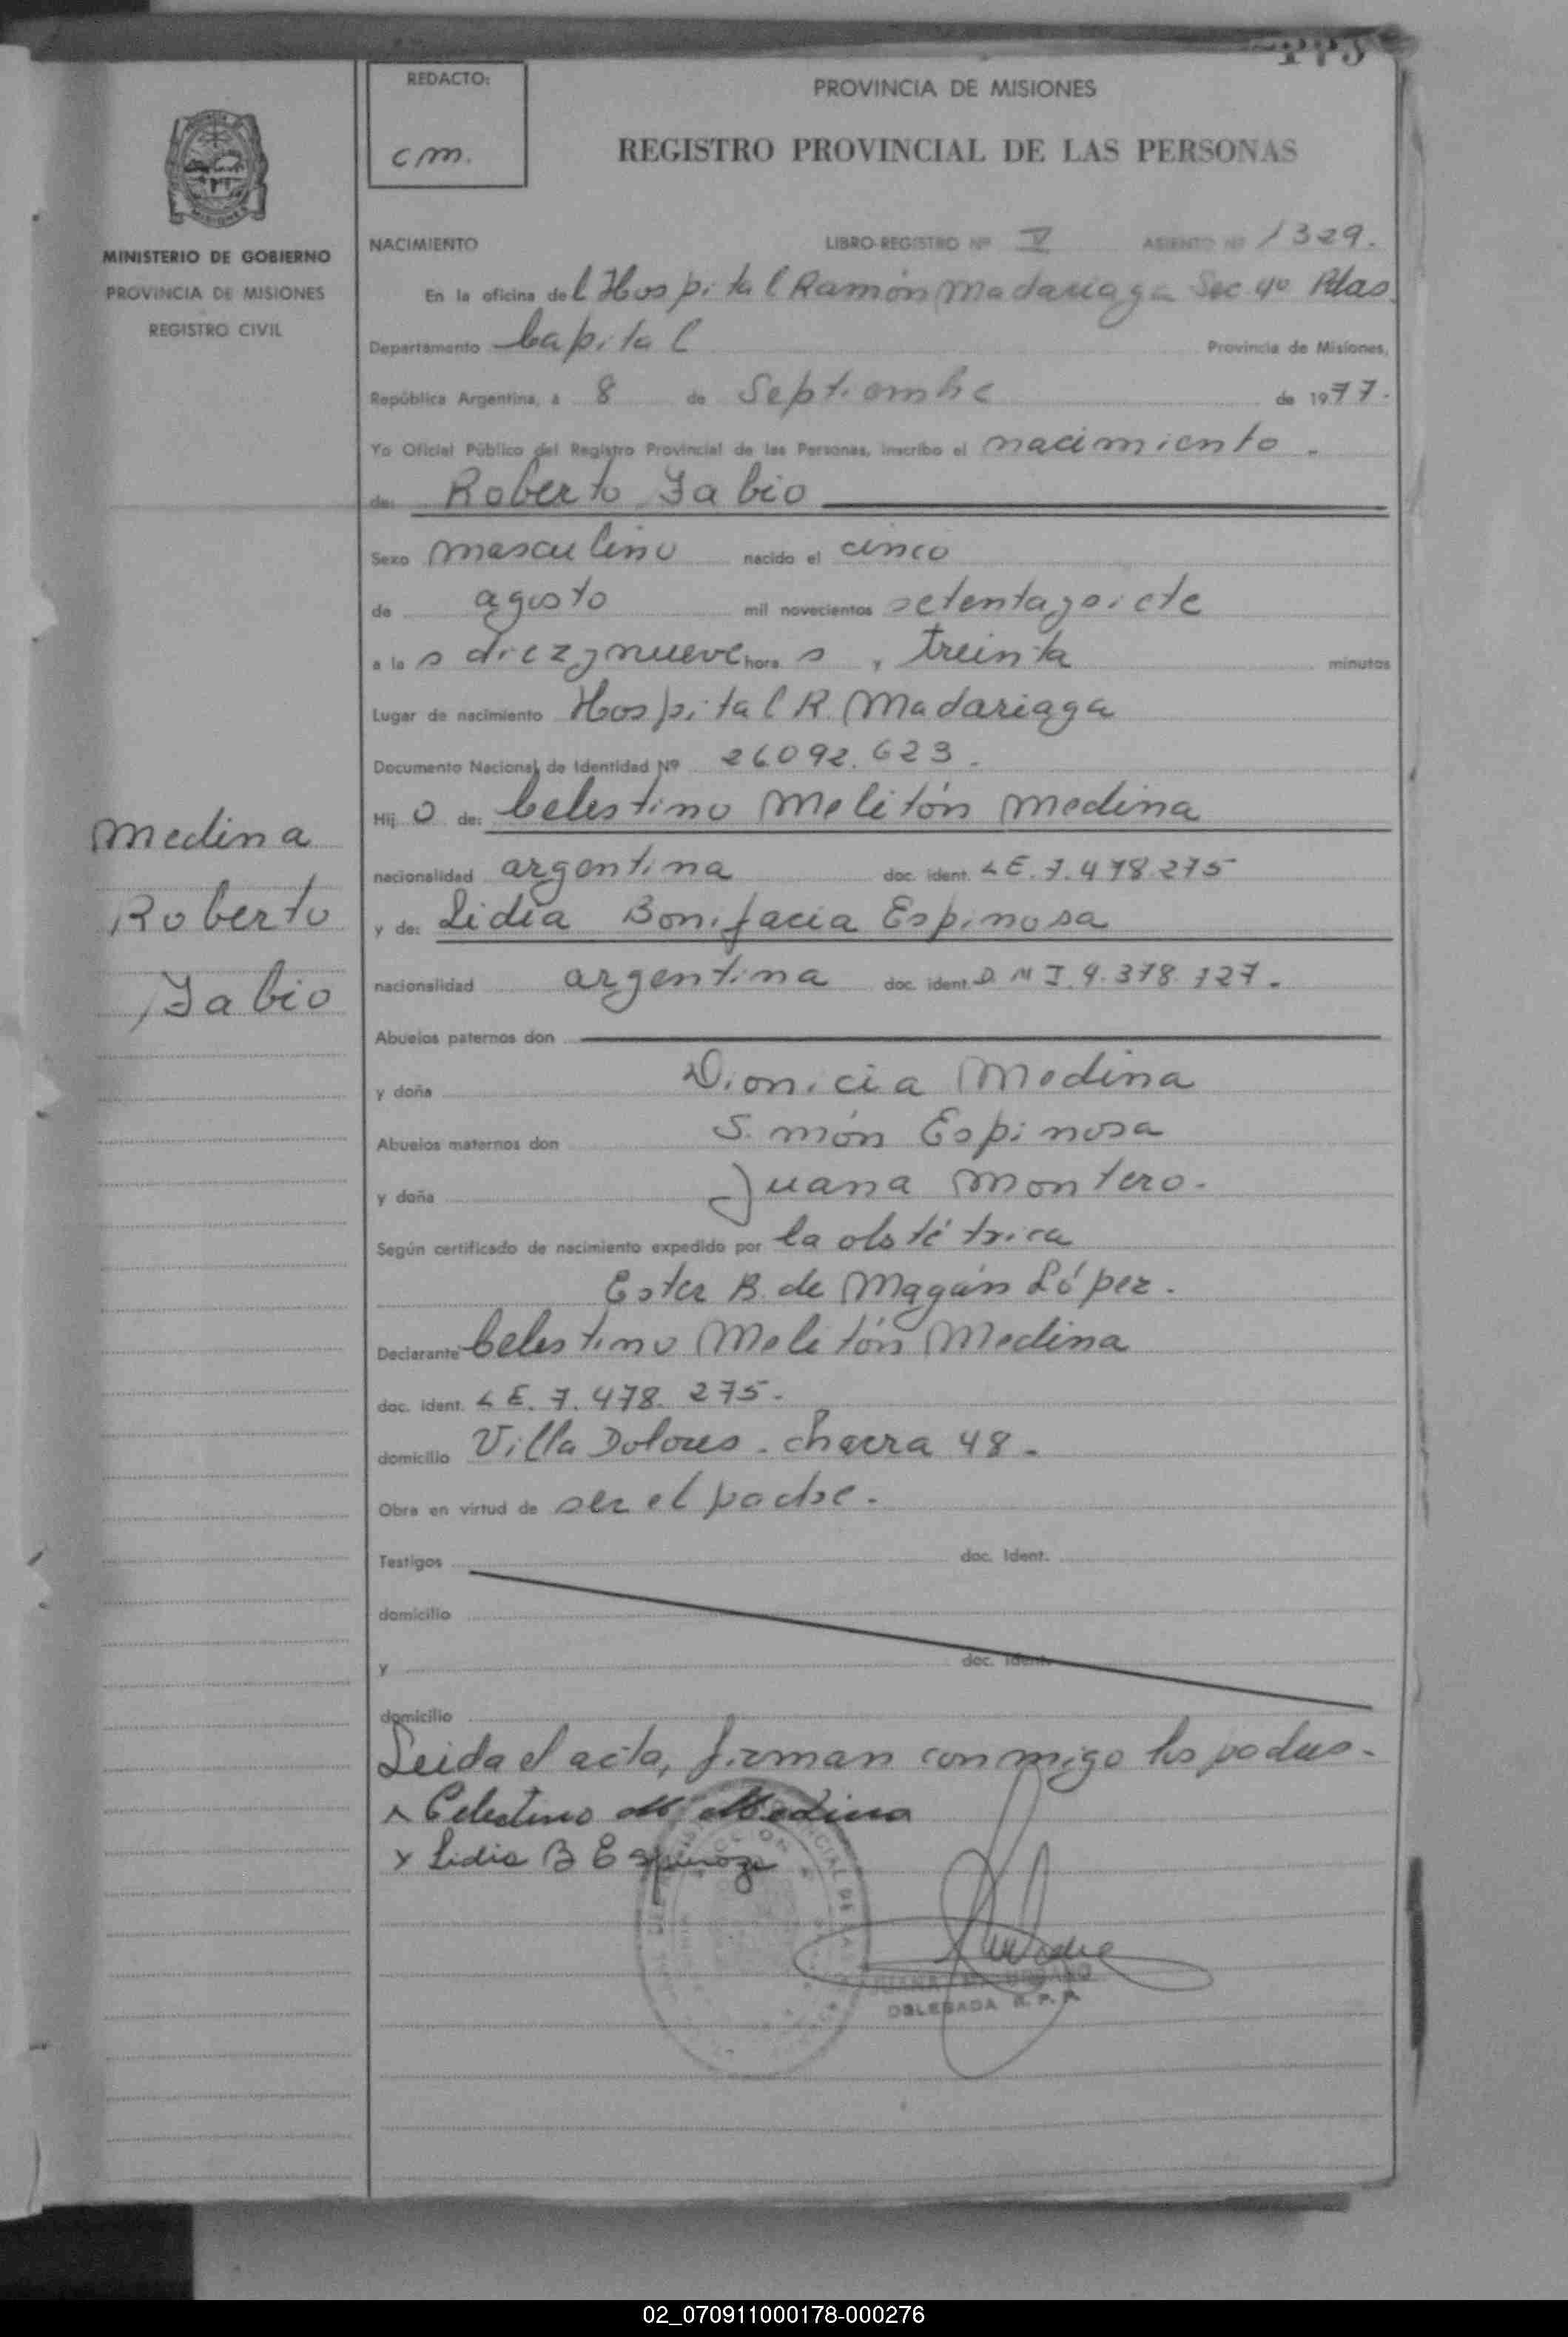 REDACTO:
cm.
PROVINCIA DE MISIONES
REGISTRO PROVINCIAL DE LAS PERSONAS
MINISTERIO DE GOBIERNO
PROVINCIA DE MISIONES
REGISTRO CIVIL
NACIMIENTO LIBRO-REGISTRO Nº V ASIENTO Nº 1329.
En la oficina del Hospital Ramón Madariaga Sec 4º Pdas
Departamento Capital Provincia de Misiones,
República Argentina, a 8 de Septiembre de 1977.
Yo Oficial Público del Registro Provincial de las Personas, inscribo el nacimiento.
de: Roberto Fabio
Sexo masculino nacido el cinco
de agosto mil novecientos setentaysiete
a las diezynueve horas y treinta minutos
Lugar de nacimiento Hospital R. Madariaga
Documento Nacional de Identidad Nº 26092.623.
Hijo de: Celestino Melitón Medina
nacionalidad argentina doc. ident. LE. 7.478.275
y de: Lidia Bonifacia Espinosa
nacionalidad argentina doc. ident. D N I. 9.378.727.
Abuelos paternos don
y doña Dionicia Medina
Abuelos maternos don Simón Espinosa
y doña Juana Montero.
Según certificado de nacimiento expedido por la obstétrica
Ester B. de Magán López.
Declarante Celestino Melitón Medina
doc. ident. LE. 7.478.275.
domicilio Villa Dolores. Chacra 48.
Obra en virtud de ser el padre.
Testigos doc. Ident.
domicilio
y doc. Ident.
domicilio
Leida el acta, firman conmigo los padres.
x Celestino M Medina
x Lidia B Espinoza
DELEGADA R. P. P.
Medina
Roberto
Fabio
02_070911000178-000276